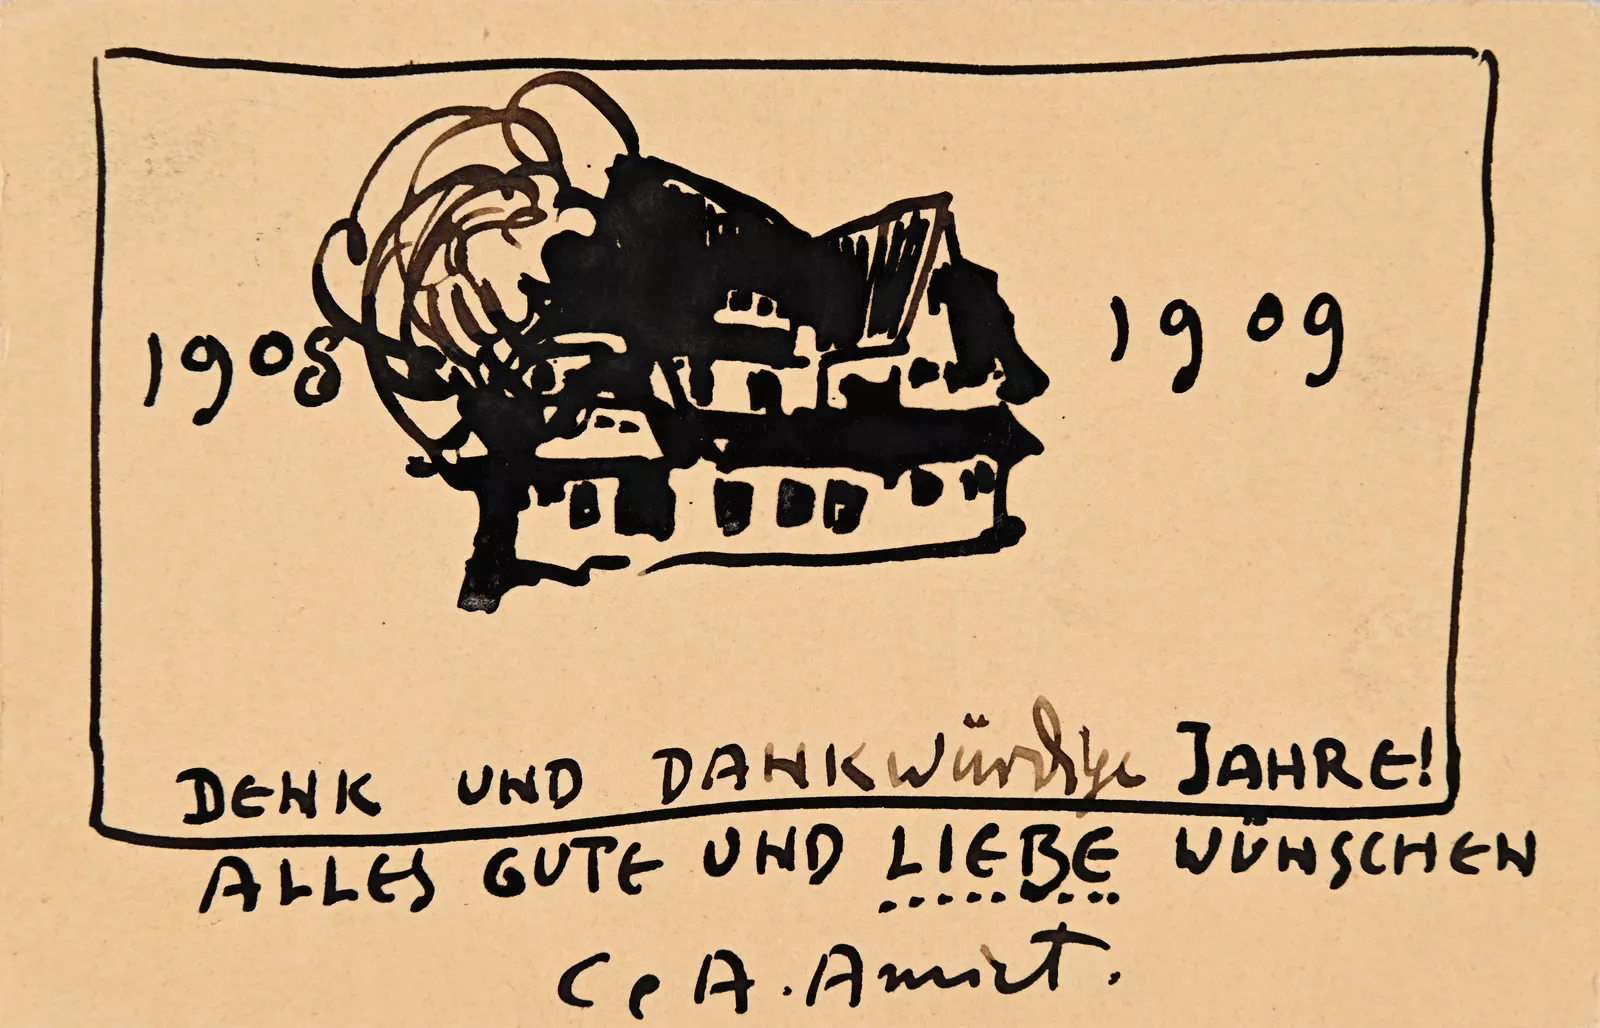 1908 1909
DENK UND DANKwürdige JAHRE!
ALLES GUTE UND LIEBE WÜNSCHEN
C e A. Amiet.